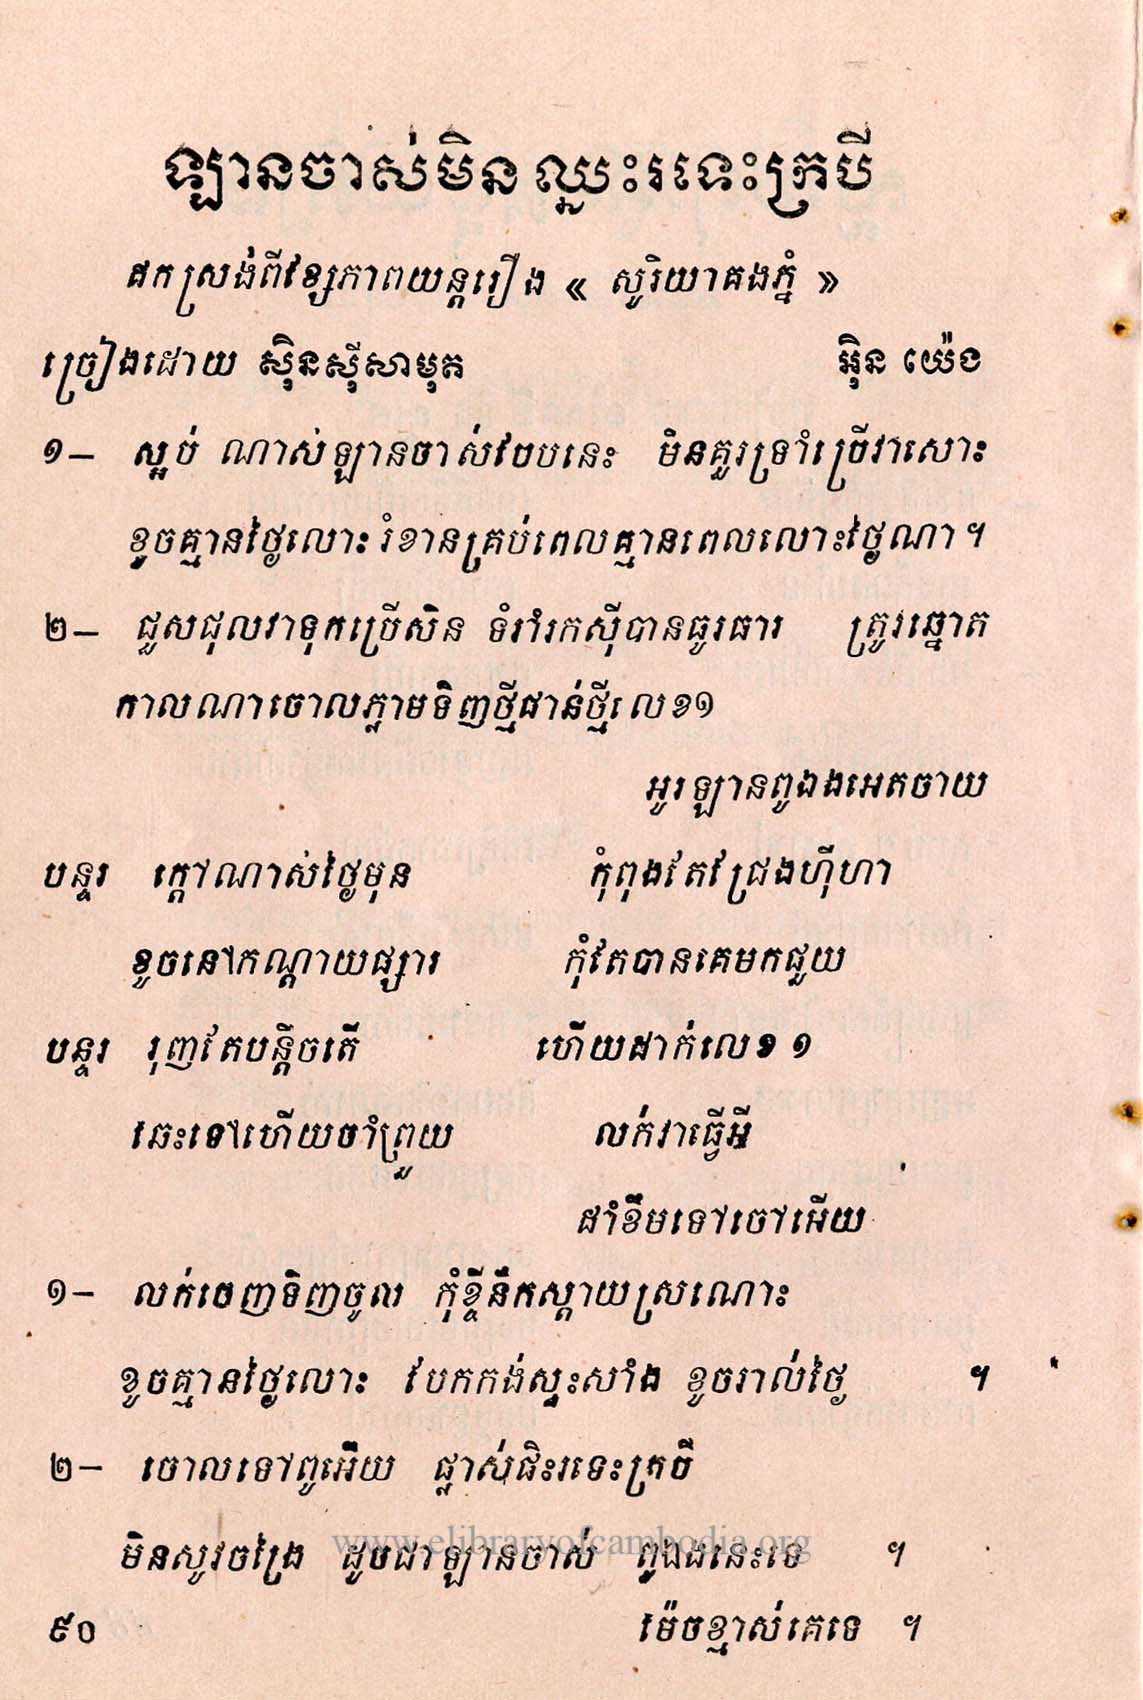 ឡានចាស់មិន ឈ្នះរទេះក្របី
ដកស្រង់ពីខ្សែភាពយន្តរឿង « សូរិយាគងភ្នំ »
ច្រៀងដោយ ស៊ិនស៊ីសាមុត អ៊ិន យ៉េង
១- ស្អប់ ណាស់ឡានចាស់បែបនេះ មិនគួរទ្រាំច្រើវាសោះ
ខូចគ្មានថ្ងៃលោះ រំខានគ្រប់ពេលគ្មានពេលលោះថ្ងៃណា ។
២- ជួសជុលវាទុកប្រើសិន ទំរាំរកស៊ីបានធូរធារ ត្រូវឆ្នោត
កាលណាចោលភ្លាមទិញថ្មីជាន់ថ្មីលេខ១
អូរឡានពូឯងអេតចាយ
បន្ទរ ក្តៅណាស់ថ្ងៃមុន កុំពុងតែជ្រែងហ៊ីហា
ខូចនៅកណ្តាយផ្សារ កុំតែបានគេមកជួយ
បន្ទរ រុញតែបន្តិចតើ ហើយដាក់លេខ ១
ឆេះទៅហើយចាំព្រួយ លក់វាធ្វើអី
ដាំខឹមទៅចៅអើយ
១- លក់ចេញទិញចូល កុំខ្ចីនឹកស្តាយស្រណោះ
ខូចគ្មានថ្ងៃលោះ បែកកង់ស្ទះសាំង ខូចរាល់ថ្ងៃ ។
២- ចោលទៅពូអើយ ផ្លាស់ជិះរទេះក្របី
មិនសូវចង្រៃ ដូចជាឡានចាស់ ពូឯងនេះទេ ។
៩០ ម៉េចខ្មាស់គេទេ ។
www.elibraryofcambodia.org